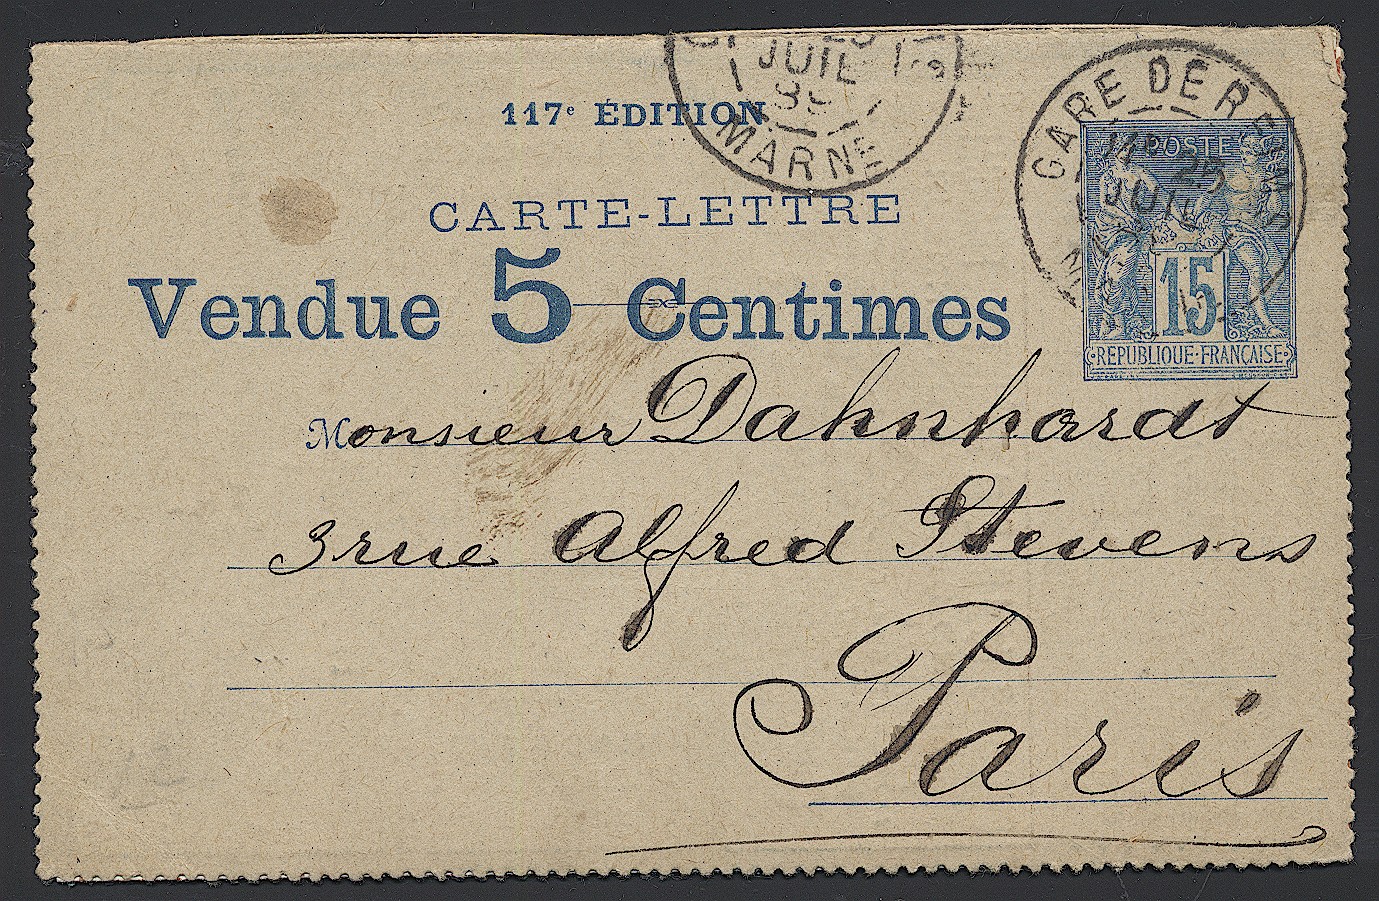 JUIL
MARNE
117ᵉ ÉDITION
GARE DE REIMS
POSTE
25
JUIL
15
RÉPUBLIQUE-FRANÇAISE
CARTE-LETTRE
Vendue 5 Centimes
Monsieur Dahnhardt
3 rue Alfred Stevens
Paris